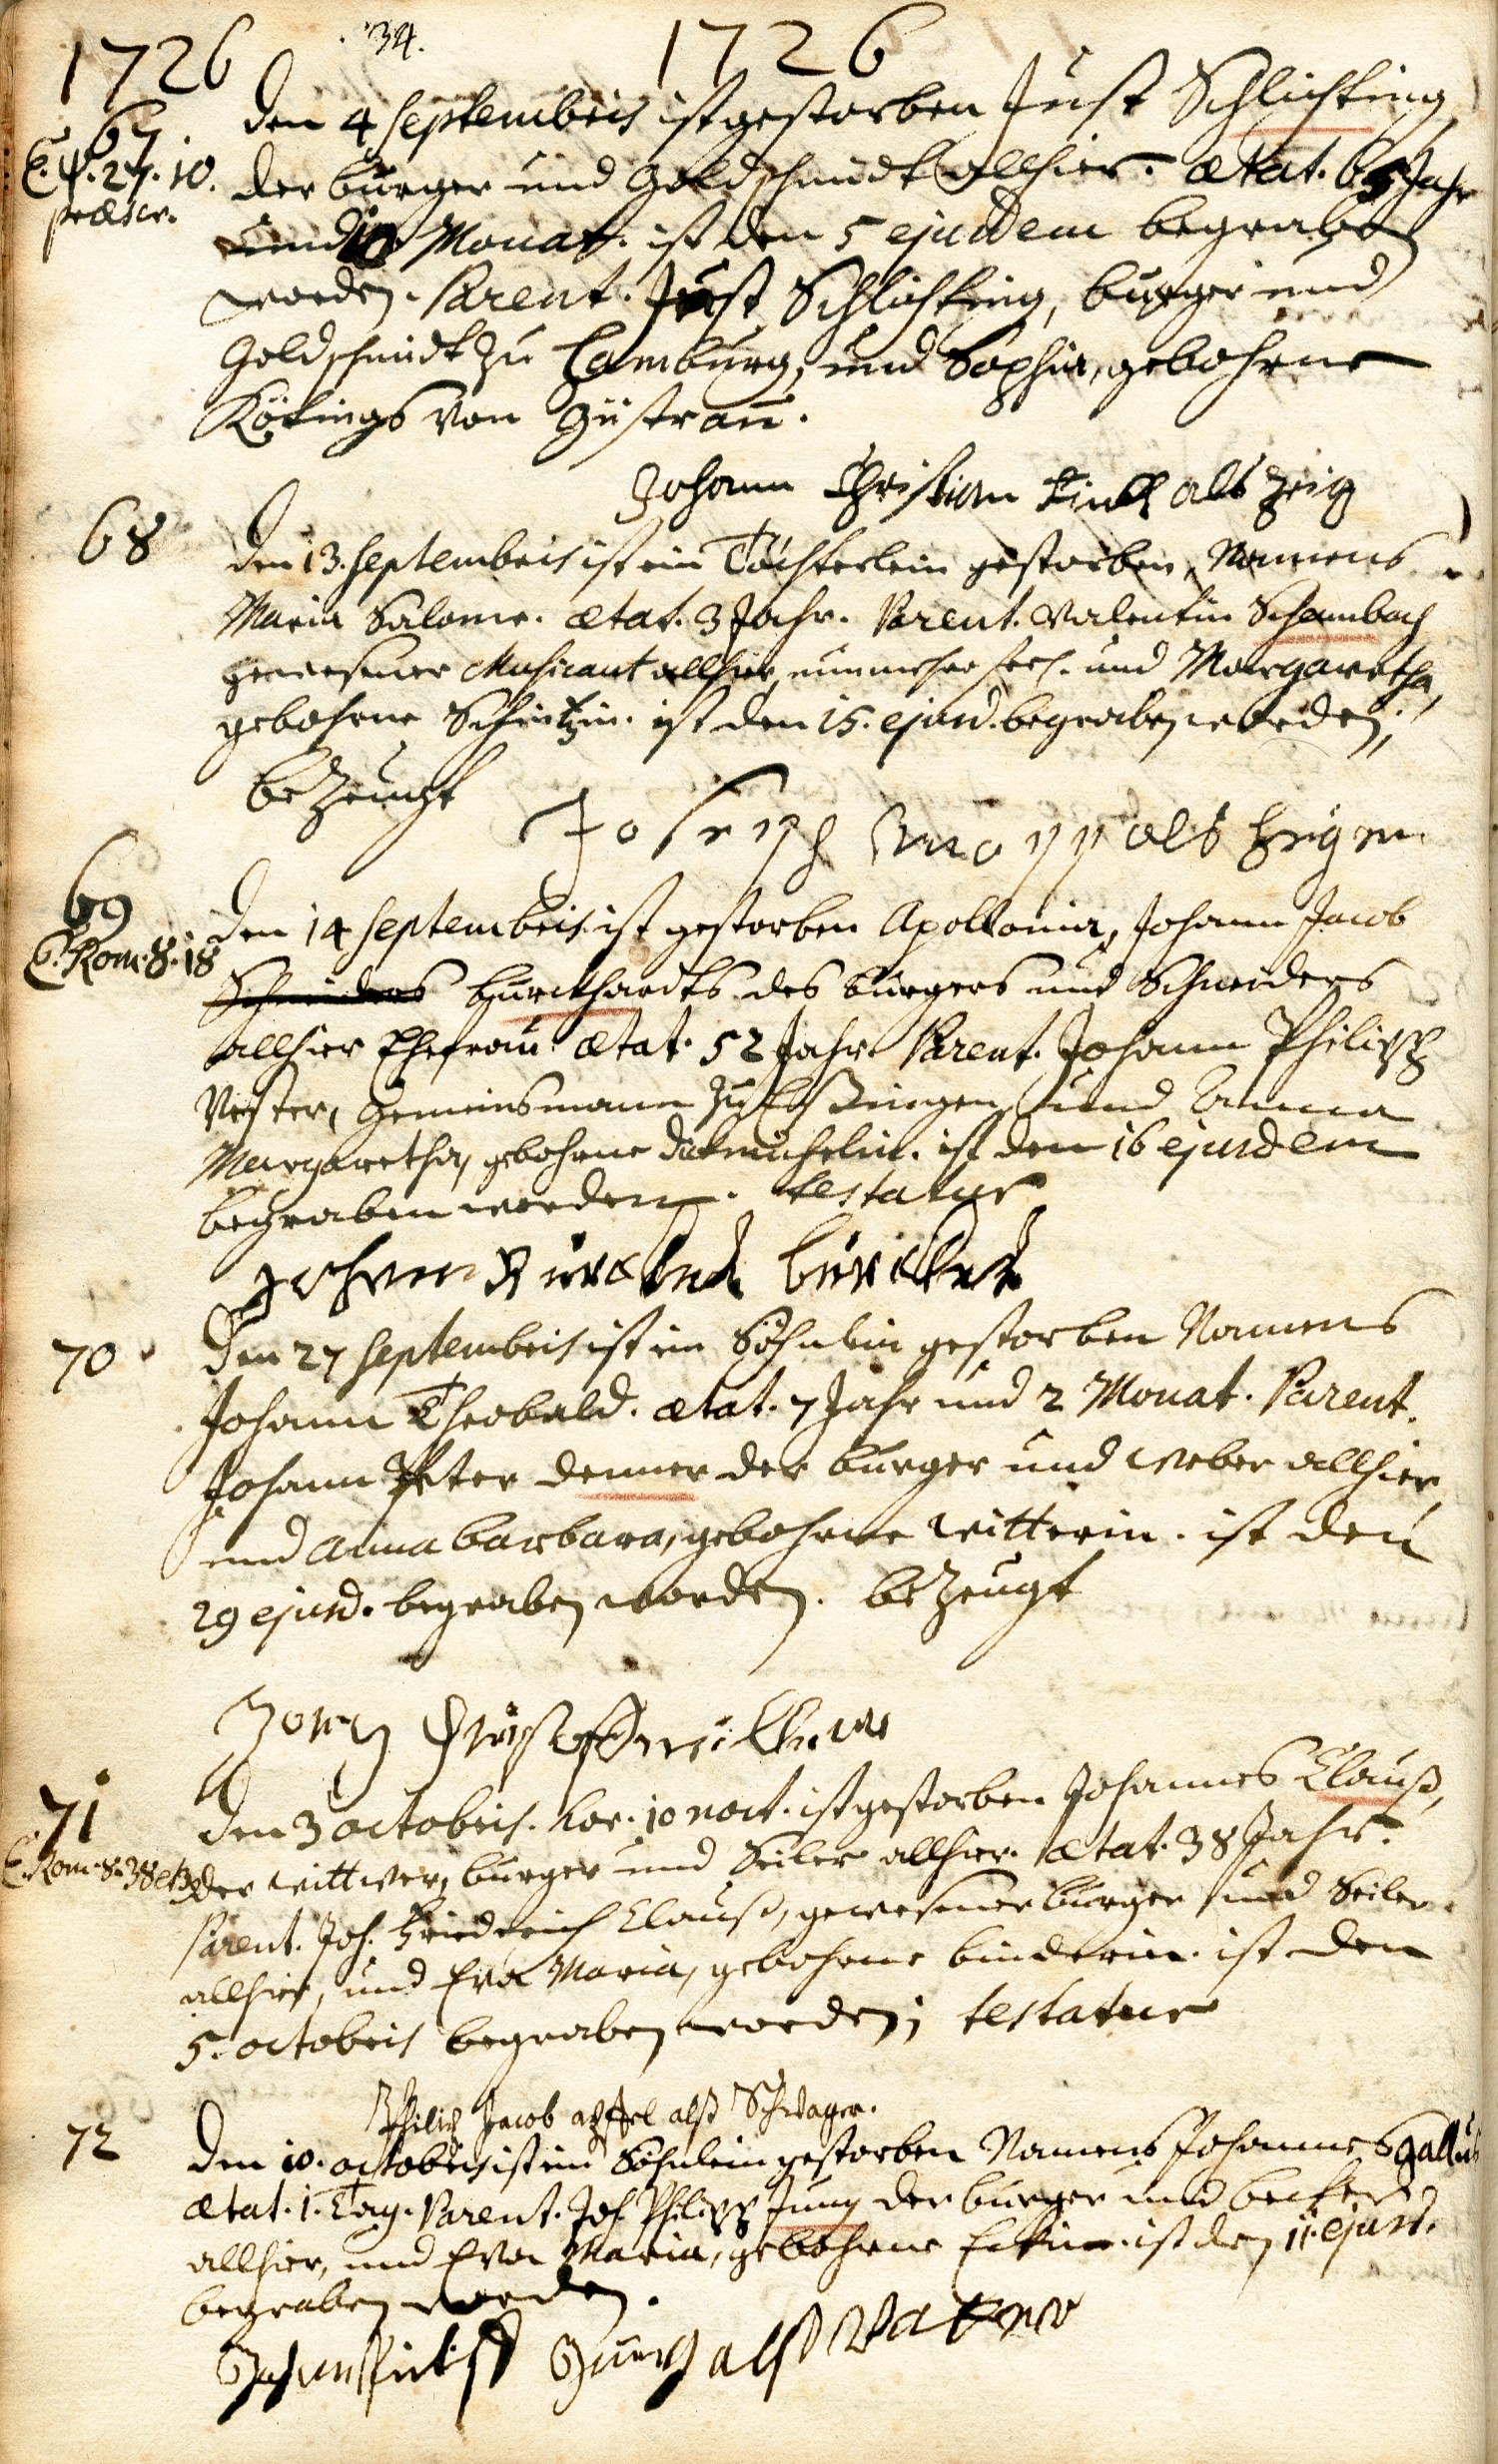 1726 34. 1726
67. Den 4 Septembris ist gestorben Just Schlichting,
C. ψ. 27. 10. der burger und Goldschmidt allhier. ætat. 65 Jahr
præscr. und 10 Monat. ist den 5 ejusdem begraben
worden. Parent. Just Schlichting, burger und
Goldschmidt zu Hamburg, und Sophia, gebohrne
Kötings von Güstrau.
Johann Christian als zeig
68 Den 13. Septembris ist ein Töchterlein gestorben, Namens
Maria Salome. ætat. 3 Jahr. Parent. Valentin Schambach
gewesener Musicant allhier, nunmehro seel. und Margaretha,
gebohrne ist den 15. ejusd. begraben worden;
bezeugt
Joseph als zeigen
69 Den 14 Septembris ist gestorben Apollonia, Johann Jacob
C. Rom. 8. 18 Schneiders burckhardts des burgers und Schneiders
allhier Ehefrau ætat. 52 Jahr. Parent. Johann Philipp
Vester, Gemeinsmann zu und Anna
Margaretha, gebohrne ist den 16 ejusdem
begraben worden. testatur
burckhardt
70 Den 27 Septembris ist ein Söhnlein gestorben Namens
Johann Theobald. ætat. 7 Jahr und 2 Monat. Parent.
Johann Peter Denner der burger und weber allhier,
und Anna barbara, gebohrne Witterin. ist den
29 ejusd. begraben worden. bezeugt
Jorg
71 Den 3 octobris. hor. 10 noct. ist gestorben Johannes Clauß,
C. Rom. 8. 38 et 39 der wittwer, burger und Seiler allhier. ætat. 38 Jahr.
Parent. Joh. Friedrich Clauß, gewesener burger und Seiler
allhier, und Eva Maria, gebohrne binderin. ist den
5. octobris begraben worden; testatur
Philip Jacob apffel alß Schwager.
72 Den 10. octobris ist ein Söhnlein gestorben Namens Johannes Gallus
ætat. 1. Tag. Parent. Joh. Philipp Jung der burger und becker
allhier, und Eva Maria, gebohrne ist den 11. ejusd.
begraben worden.
Johan Filips Jung alß Vatter